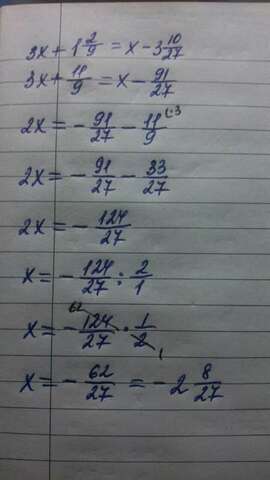 3x + 1 2/9 = x - 3 10/27
3x + 11/9 = x - 91/27
2x = - 91/27 - 11/9 (·3
2x = - 91/27 - 33/27
2x = - 124/27
x = - 124/27 : 2/1
x = - 124/27 · 1/2 62 1
x = - 62/27 = - 2 8/27